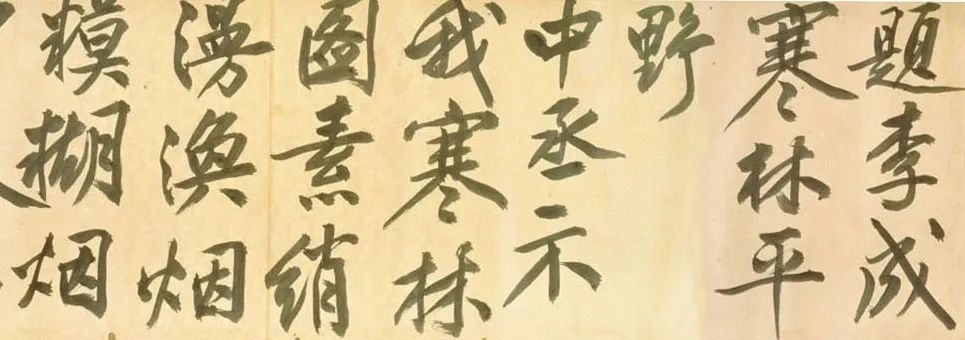 題李成
寒林平
野
中丞示
我寒林
圖素綃
漫渙烟
糢糊烟